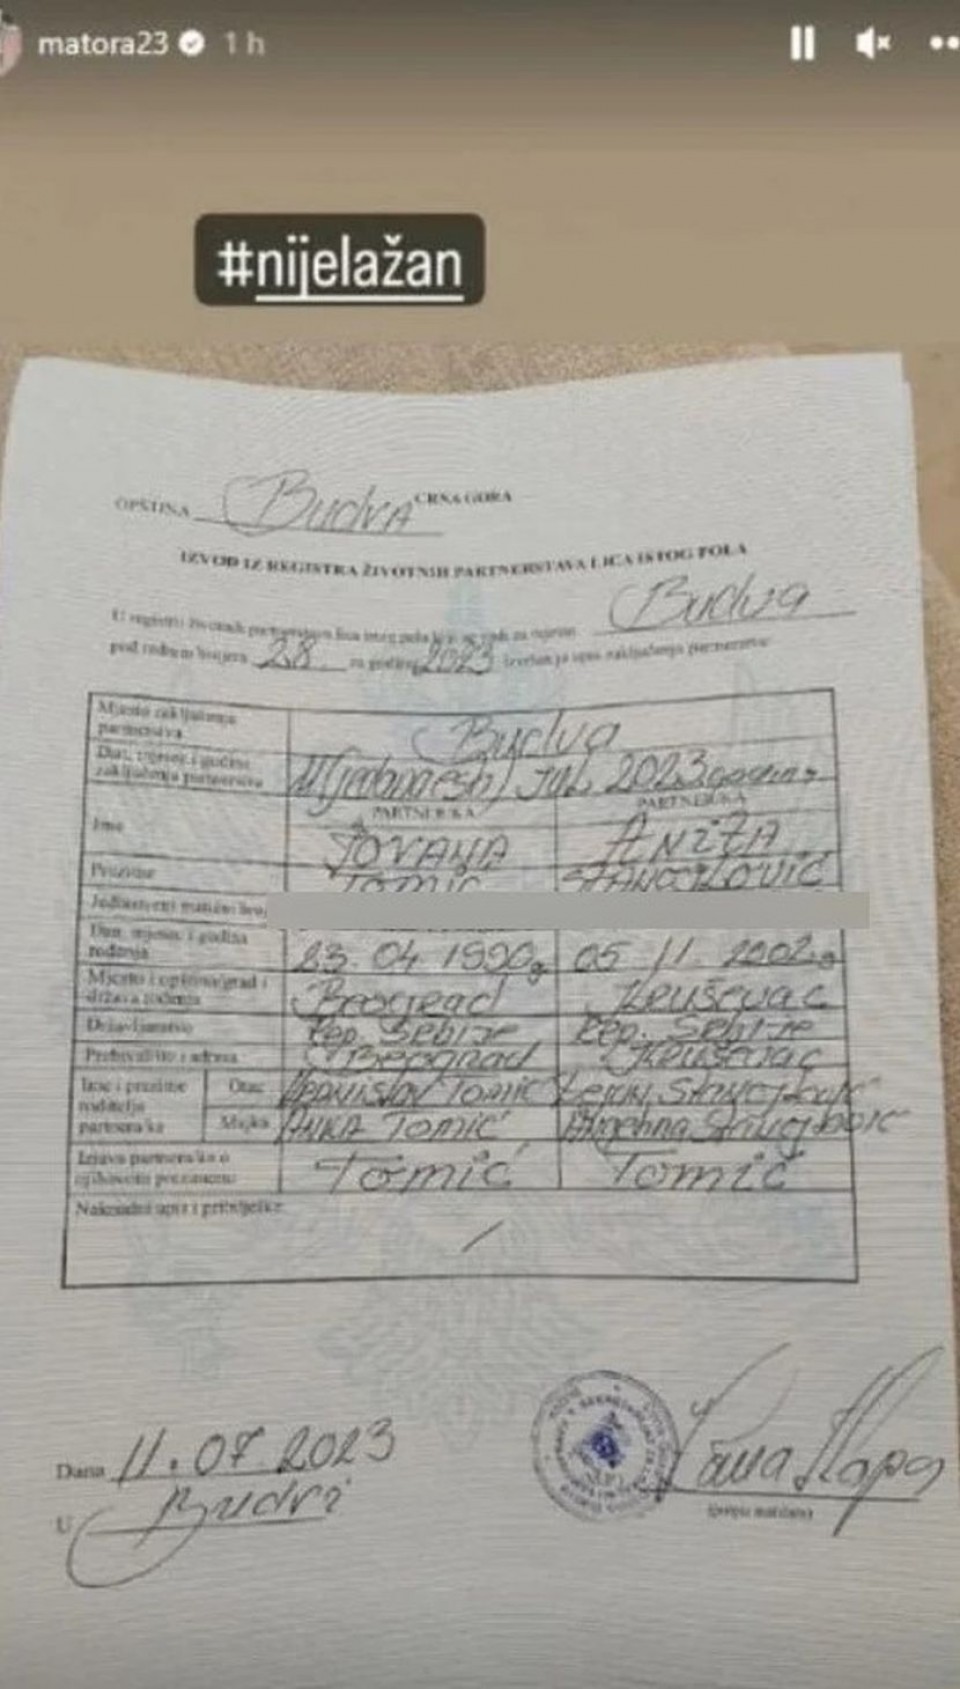 matora23 1 h
#nijelažan
CRNA GORA
OPŠTINA Budva
IZVOD IZ REGISTRA ŽIVOTNIH PARTNERSTAVA LICA ISTOG POLA
U registru životnih partnerstava lica istog pola koji se vodi za mjesto Budva
pod rednim brojem 28. za godinu 2023 izvršen je upis zaključenja partnerstva:
Mjesto zaključenja partnerstva Budva
Dan, mjesec i godina zaključenja partnerstva jul 2023 godine
PARTNER/KA PARTNER/KA
Ime JOVANA ANIŽA
Prezime TOMIĆ STANOJLOVIĆ
Jedinstveni matični broj
Dan, mjesec i godina rođenja 23. 04 1990g 05 11. 2002.g
Mjesto i opština/grad i država rođenja Beograd Kruševac
Državljanstvo Rep. Srbije Rep. Srbije
Prebivalište i adresa Beograd Kruševac
Ime i prezime roditelja partnera/ke
Otac TOMIĆ Stanojlović
Majka ANKA TOMIĆ Stanojlović
Izjava partnera/ke o njihovom prezimenu TOMIĆ TOMIĆ
Naknadni upisi i pribilješke:
/
Dana 11.07.2023
U Budvi
(potpis matičara)